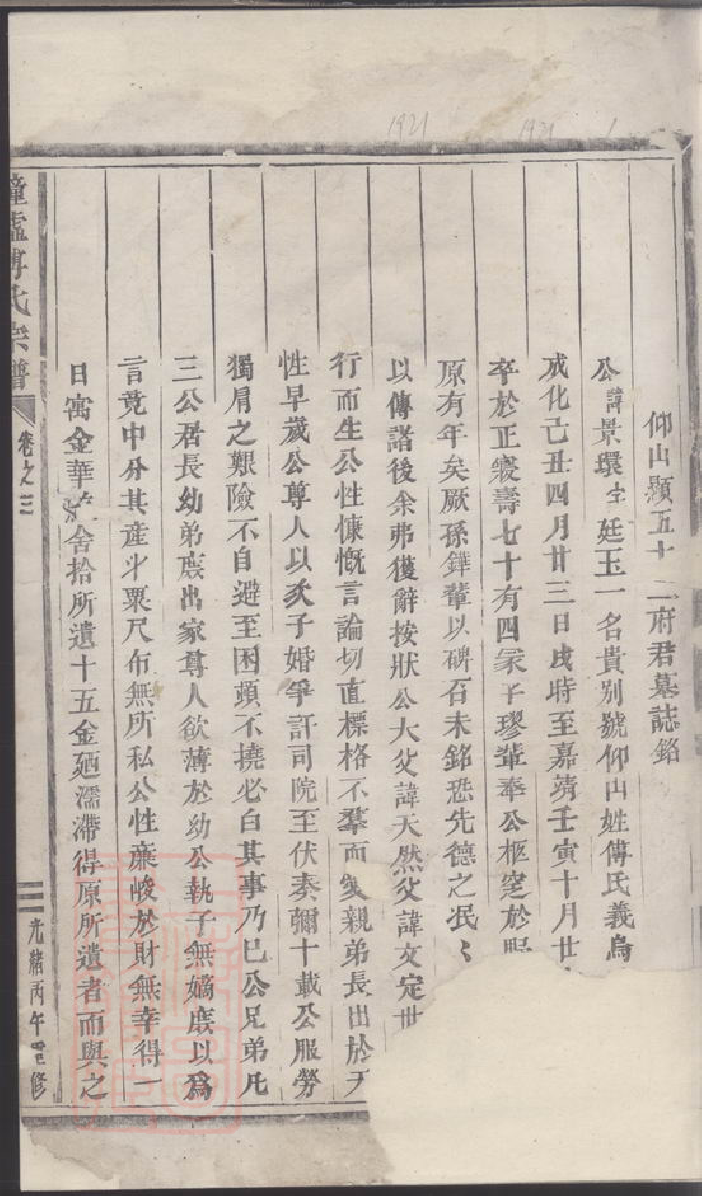 仰山顯五十二府君墓誌銘
公諱景環字廷玉一名貴別號仰山姓傅氏義烏
成化己丑四月廿三日戌時至嘉靖壬寅十月廿
卒於正寢壽七十有四冢子璆輩奉公柩窆於
原有年矣厥孫鏵輩以碑石未銘恐先德之泯〻
以傳諸後余弗獲辭按狀公大父諱天然父諱文定世
行而生公性慷慨言論切直標格不羣而家親弟長出於天
性早歲公尊人以次子婚爭訐司院至伏奏彌十載公服勞
獨肩之艱險不自避至困頭不撓必白其事乃已公兄弟凡
三公居長幼弟庶出家尊人欲薄於幼公執子無嫡庶以爲
言竟中分其產斗粟尺布無所私公性廉峻於財無幸得一
日寓金華舍拾所遺十五金廼濡滯得原所遺者而與之
傅氏宗譜
卷之三
光緒丙午重修
1921
1921